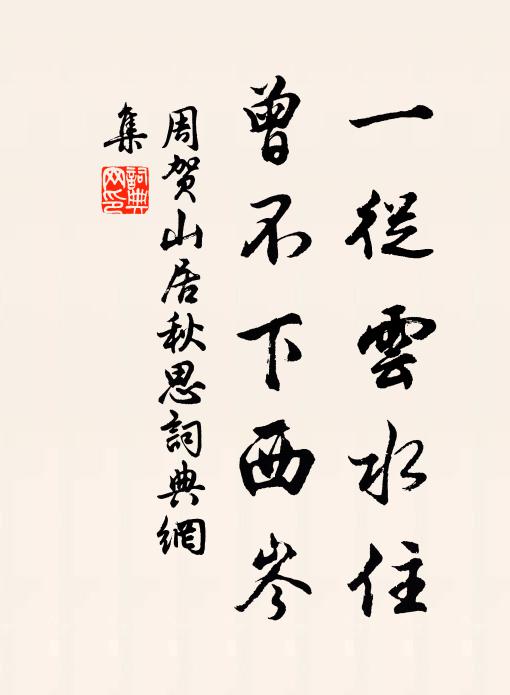 一從雲水住
曾不下西岑
周贺山居秋思詞典網
集
詞典
网印